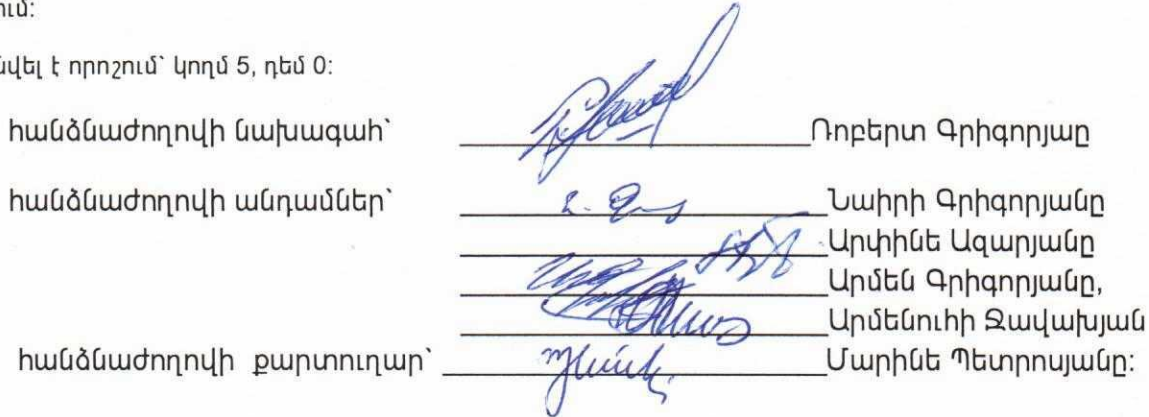 ում:
նվել է որոշում՝ կողմ 5, դեմ 0:
հանձնաժողովի նախագահ՝ Ռոբերտ Գրիգորյաը
հանձնաժողովի անդամներ՝ Նաիրի Գրիգորյանը
Արփինե Ազարյանը
Արմեն Գրիգորյանը,
Արմենուհի Ջավախյան
հանձնաժողովի քարտուղար՝ Մարինե Պետրոսյանը: